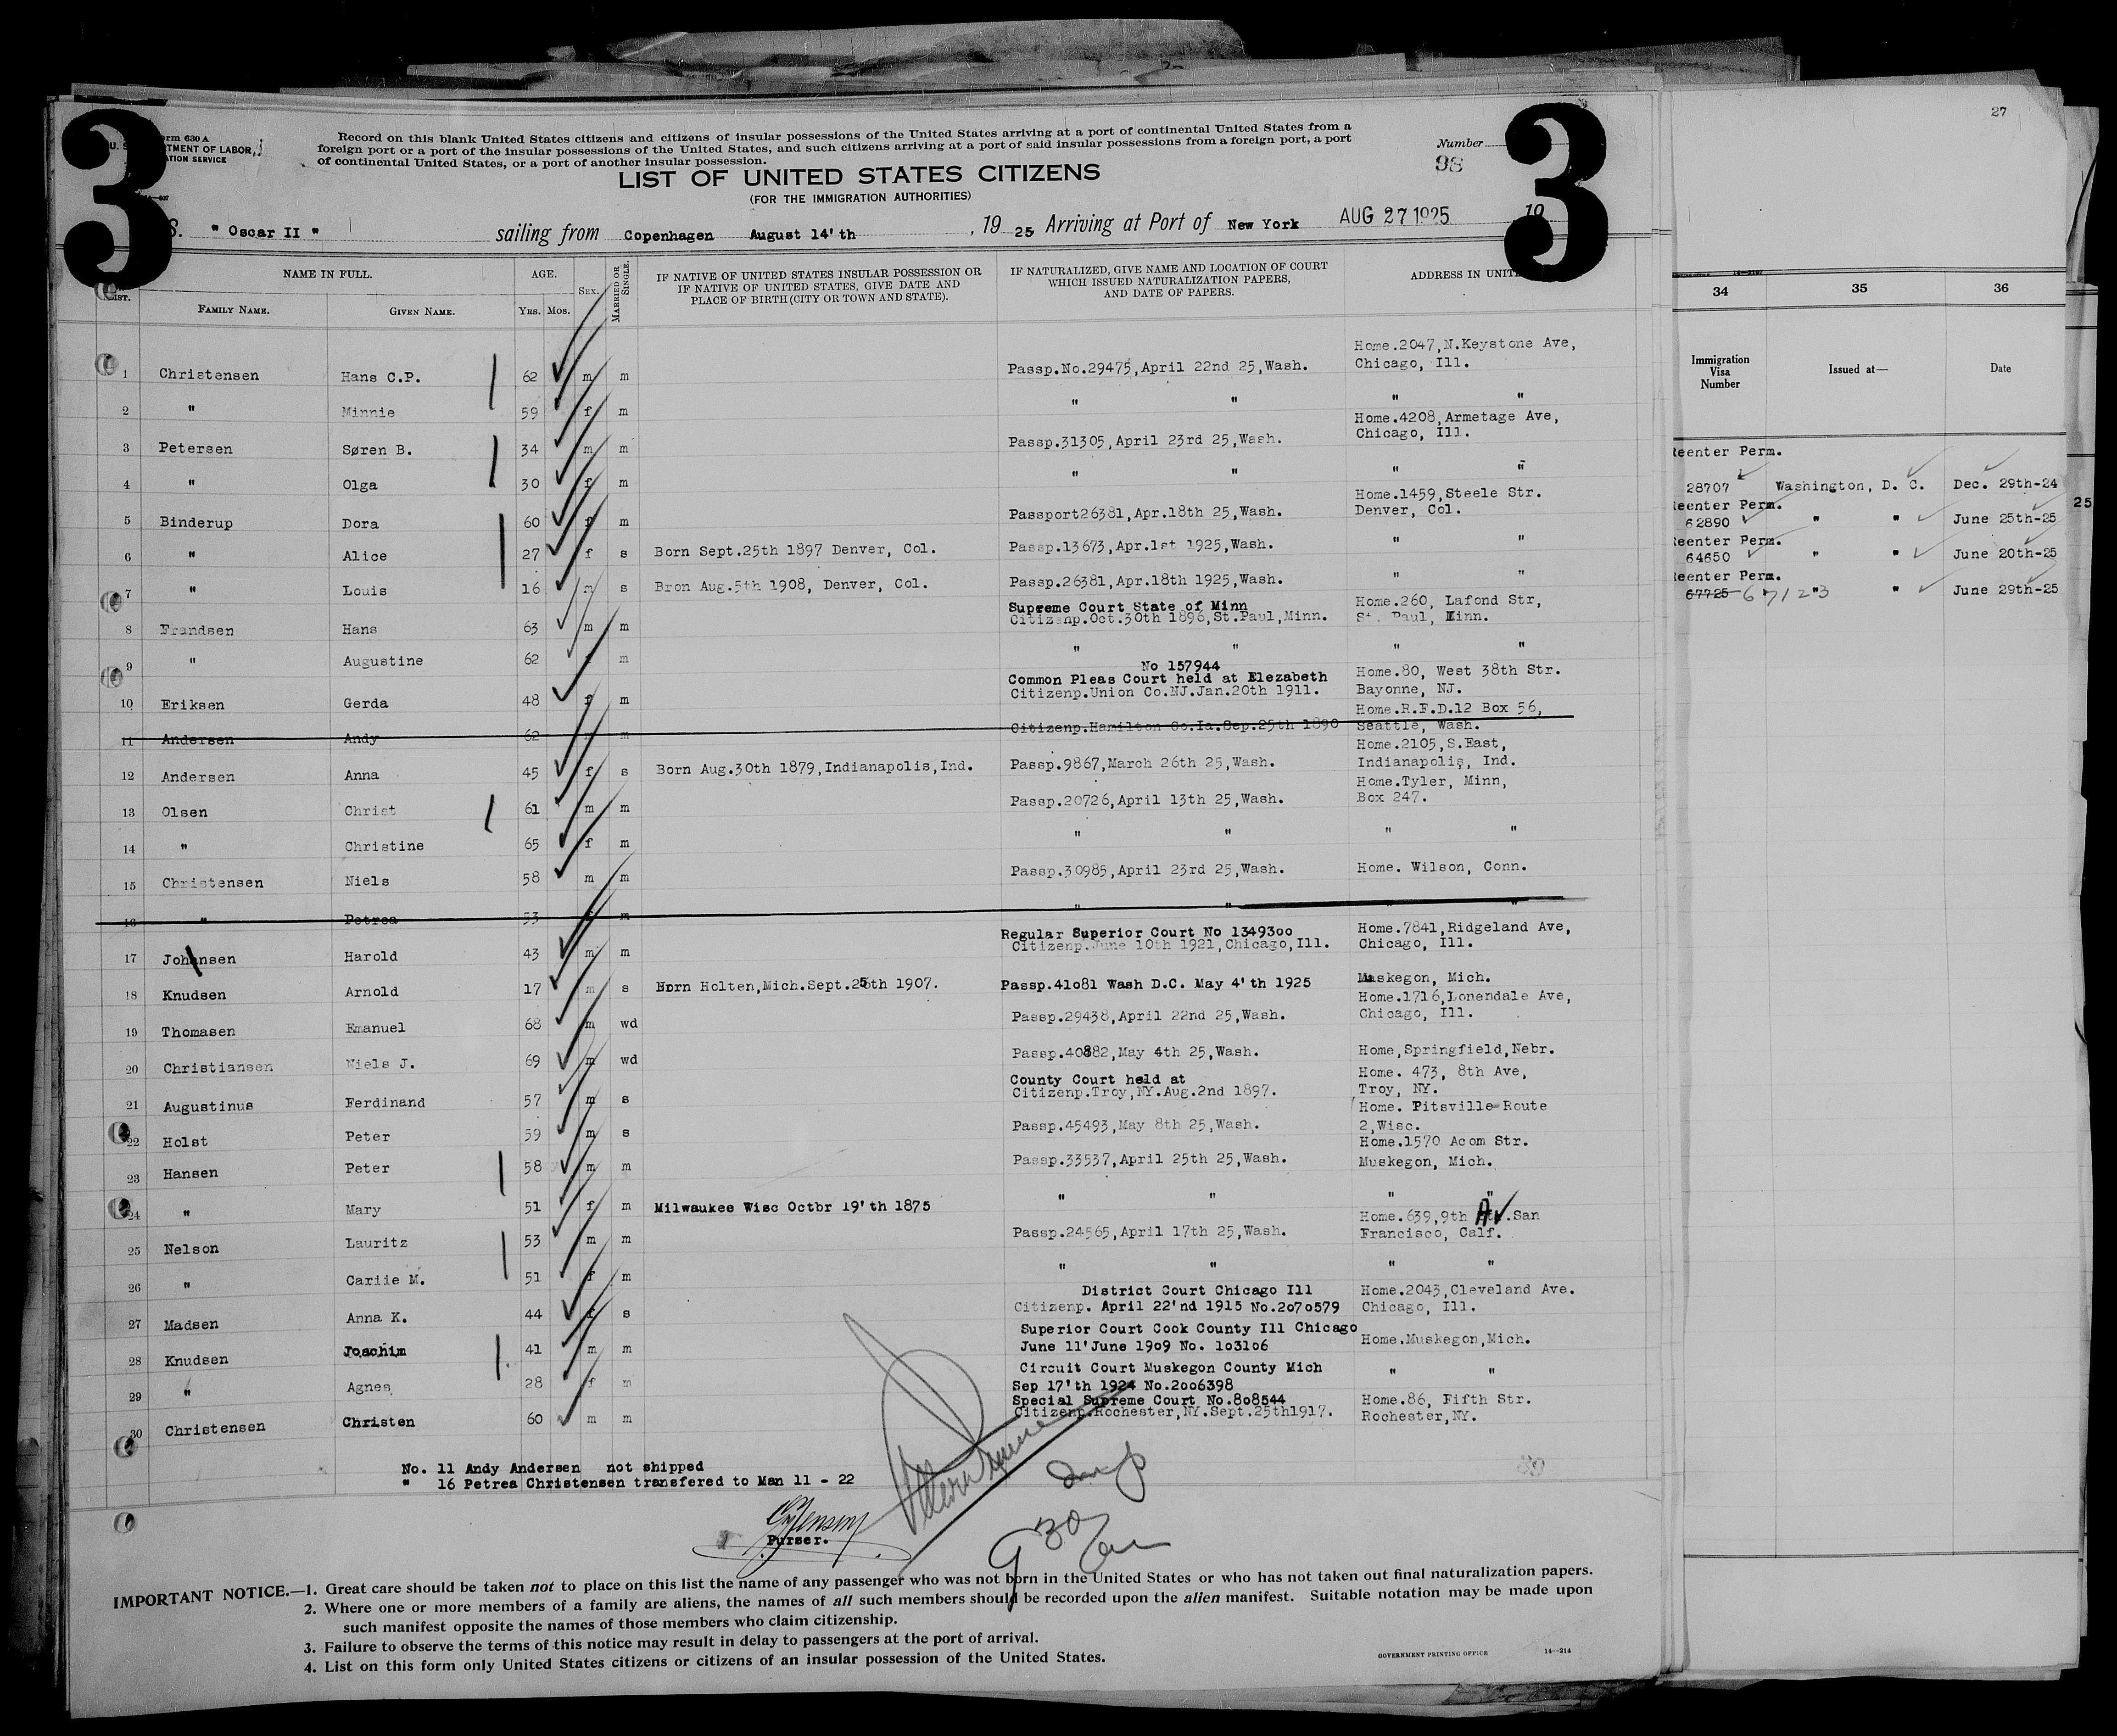 3
3
27
orm 630 A
U. S. RTMENT OF LABOR
ATION SERVICE
Record on this blank United States citizens and citizens of insular possessions of the United States arriving at a port of continental United States from a
foreign port or a port of the insular possessions of the United States, and such citizens arriving at a port of said insular possessions from a foreign port, a port
of continental United States, or a port of another insular possession.
Number
98
LIST OF UNITED STATES CITIZENS
(FOR THE IMMIGRATION AUTHORITIES)
S. " Oscar II " sailing from Copenhagen August 14'th , 19 25 Arriving at Port of New York AUG 27 1925 19
NAME IN FULL. AGE. SEX. MARRIED OR SINGLE. IF NATIVE OF UNITED STATES INSULAR POSSESSION OR IF NATIVE OF UNITED STATES, GIVE DATE AND PLACE OF BIRTH (CITY OR TOWN AND STATE). IF NATURALIZED, GIVE NAME AND LOCATION OF COURT WHICH ISSUED NATURALIZATION PAPERS, AND DATE OF PAPERS. ADDRESS IN UNIT
LIST. FAMILY NAME. GIVEN NAME. YRS. MOS.
Home.2047,N.Keystone Ave,
1 Christensen Hans C.P. 62 m m Passp.No.29475,April 22nd 25,Wash. Chicago, Ill.
2 " Minnie 59 f m " " " "
Home.4208,Armetage Ave,
3 Petersen Søren B. 34 m m Passp.31305,April 23rd 25,Wash. Chicago, Ill.
4 " Olga 30 f m " " " "
Home.1459,Steele Str.
5 Binderup Dora 60 f m Passport26381,Apr.18th 25,Wash. Denver, Col.
6 " Alice 27 f s Born Sept.25th 1897 Denver, Col. Passp.13673,Apr.1st 1925,Wash. " "
7 " Louis 16 m s Bron Aug.5th 1908, Denver, Col. Passp.26381,Apr.18th 1925,Wash. " "
Supreme Court State of Minn Home.260, Lafond Str,
8 Frandsen Hans 63 m m Citizenp.Oct.30th 1896,St.Paul,Minn. St. Paul, Minn.
9 " Augustine 62 f m " " " "
No 157944
Common Pleas Court held at Elezabeth Home.80, West 38th Str.
10 Eriksen Gerda 48 f m Citizenp.Union Co.NJ.Jan.20th 1911. Bayonne, NJ.
Home.R.F.D.12 Box 56,
11 Andersen Andy 62 m m Citizenp.Hamilton Co.Ia.Sep.25th 1890 Seattle, Wash.
Home.2105,S.East,
12 Andersen Anna 45 f s Born Aug.30th 1879,Indianapolis,Ind. Passp.9867,March 26th 25,Wash. Indianapolis, Ind.
Home.Tyler, Minn,
13 Olsen Christ 61 m m Passp.20726,April 13th 25,Wash. Box 247.
14 " Christine 65 f m " " " "
15 Christensen Niels 58 m m Passp.30985,April 23rd 25,Wash. Home. Wilson, Conn.
16 " Petrea 53 f m " " " "
Regular Superior Court No 1349300 Home.7841,Ridgeland Ave,
17 Johansen Harold 43 m m Citizenp.June 10th 1921,Chicago,Ill. Chicago, Ill.
18 Knudsen Arnold 17 m s Born Holten,Mich.Sept.25th 1907. Passp.41081 Wash D.C. May 4'th 1925 Muskegon, Mich.
Home.1716,Lonendale Ave,
19 Thomasen Emanuel 68 m wd Passp.29438,April 22nd 25,Wash. Chicago, Ill.
20 Christiansen Niels J. 69 m wd Passp.40882,May 4th 25,Wash. Home,Springfield,Nebr.
County Court held at Home. 473, 8th Ave,
21 Augustinus Ferdinand 57 m s Citizenp.Troy,NY.Aug.2nd 1897. Troy, NY.
Home. Pitsville-Route
22 Holst Peter 59 m s Passp.45493,May 8th 25,Wash. 2,Wisc.
Home.1570 Acom Str.
23 Hansen Peter 58 m m Passp.33537,April 25th 25,Wash. Muskegon, Mich.
24 " Mary 51 f m Milwaukee Wisc Octbr 19'th 1875 " " " "
Home.639,9th Av.San
25 Nelson Lauritz 53 m m Passp.24565,April 17th 25,Wash. Francisco, Calf.
26 " Cariie M. 51 f m " " " "
District Court Chicago Ill Home.2043,Cleveland Ave.
27 Madsen Anna K. 44 f s Citizenp. April 22'nd 1915 No.2070579 Chicago, Ill.
Superior Court Cook County Ill Chicago
28 Knudsen Joachim 41 m m June 11'June 1909 No. 103106 Home.Muskegon,Mich.
Circuit Court Muskegon County Mich " "
29 " Agnes 28 f m Sep 17'th 1924 No.2006398
Special Supreme Court No.808544 Home.86, Fifth Str.
30 Christensen Christen 60 m m Citizenp.Rochester,NY.Sept.25th1917. Rochester,NY.
No. 11 Andy Andersen not shipped
" 16 Petrea Christensen transfered to Man 11 - 22
Purser.
30
IMPORTANT NOTICE.—1. Great care should be taken not to place on this list the name of any passenger who was not born in the United States or who has not taken out final naturalization papers.
2. Where one or more members of a family are aliens, the names of all such members should be recorded upon the alien manifest. Suitable notation may be made upon
such manifest opposite the names of those members who claim citizenship.
3. Failure to observe the terms of this notice may result in delay to passengers at the port of arrival.
4. List on this form only United States citizens or citizens of an insular possession of the United States.
GOVERNMENT PRINTING OFFICE 14—214
34 35 36
Immigration Visa Number Issued at— Date
eenter Perm.
28707 Washington, D. C. Dec. 29th-24
eenter Perm.
62890 " " June 25th-25
eenter Perm.
64650 " " June 20th-25
eenter Perm.
67725 67123 " " June 29th-25
25